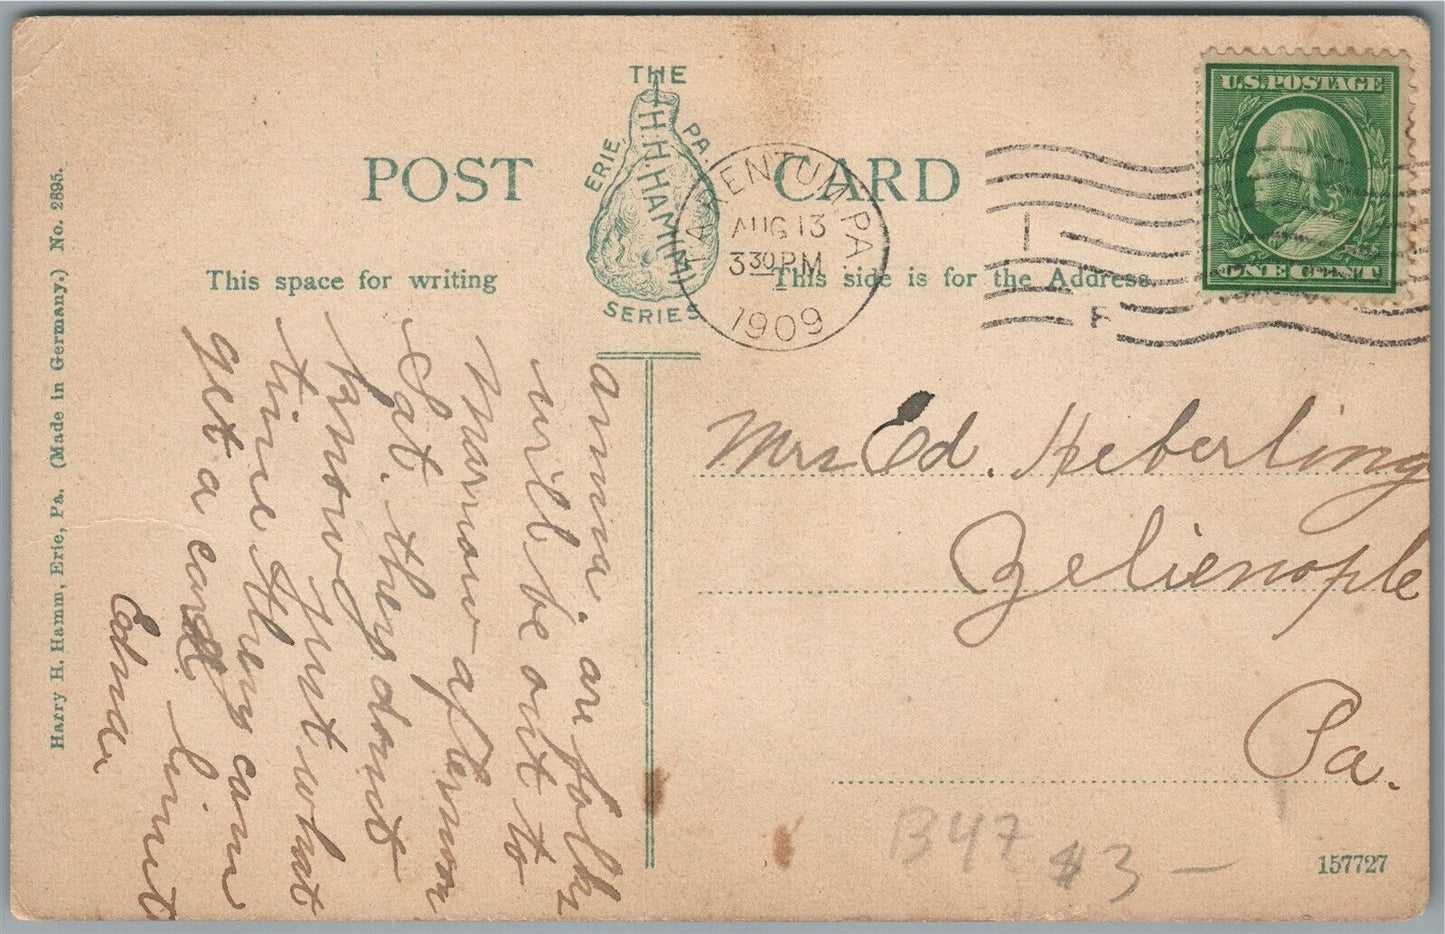 THE
H.H.HAMM
ERIE, PA.
SERIES
POST CARD
TARENTUM, PA.
AUG 13
3 30 PM
1909
U.S. POSTAGE
ONE CENT
This space for writing
This side is for the Address.
anna. our folks
will be out to
morrow afternoon
Sat. they dont
know just what
time they can
get a car limit
Edna.
Mrs Ed. Heberling
Zelienople
Pa.
B47 $3 –
157727
Harry H. Hamm, Erie, Pa. (Made in Germany.) No. 2895.